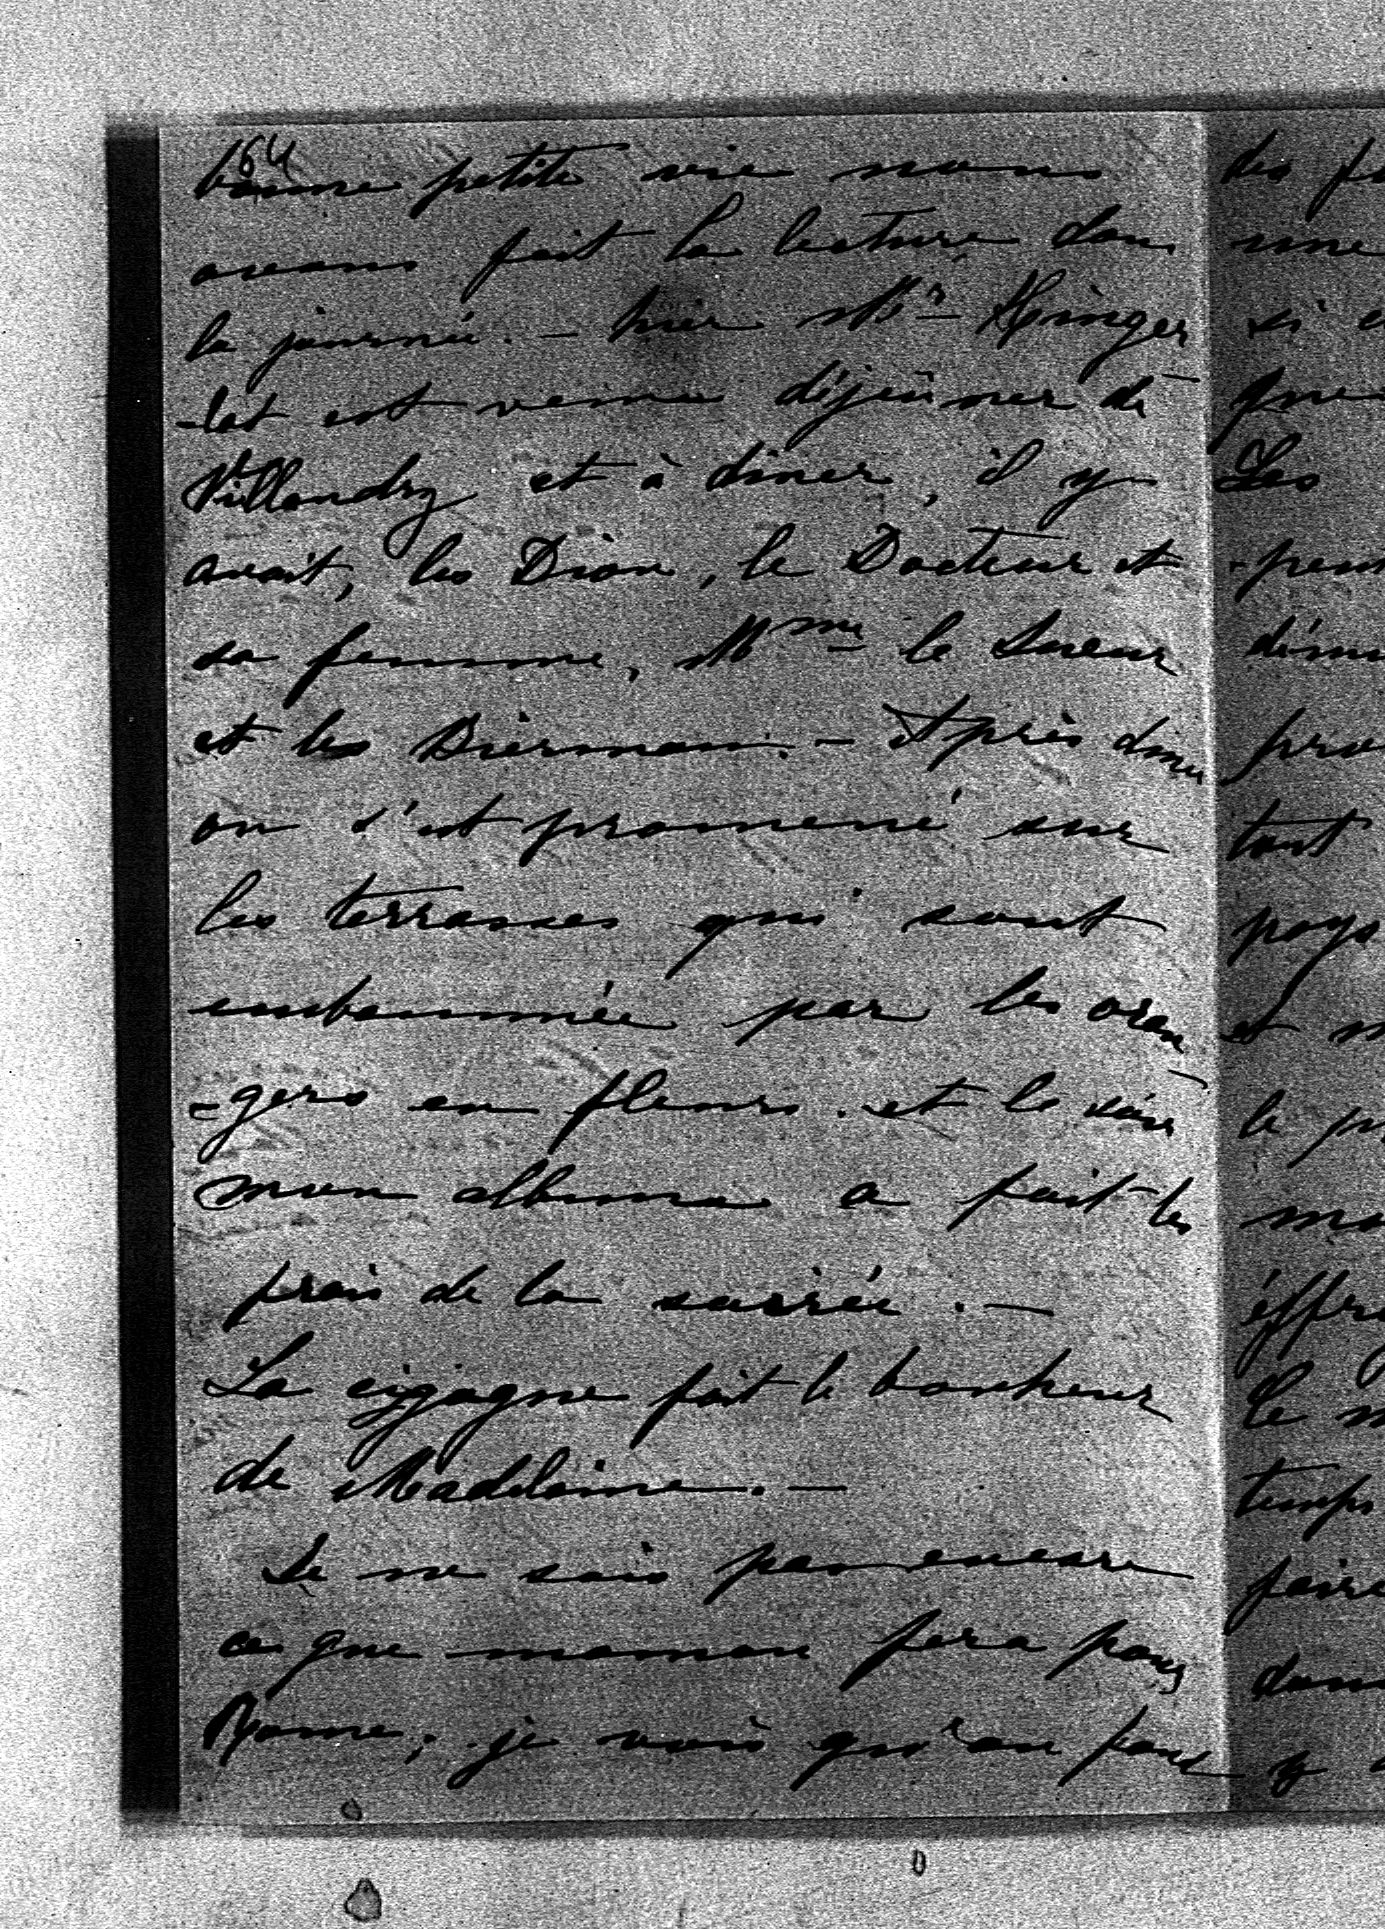 64
bonne petite vie nous
avons fait la lecture dans
la journée. — hier Mr Hinger
-lot est venu déjeûner de
Villandry et à diner, il y
avait, les Dion, le Docteur et
sa femme, Mme le Sueur
et les Bierman. — Après diner
on s'est promené sur
les terrasses qui sont
embaumée par les oran
-gers en fleurs. et le soir
mon album a fait les
frais de la soirée. —
La cigogne fait le bonheur
de Madeleine. —
Je ne sais pas encore
ce que maman fera pour
Rome; je vois qu'on peut
des
une
si
que
Les
tout
pays
et
le
temps
faire
y